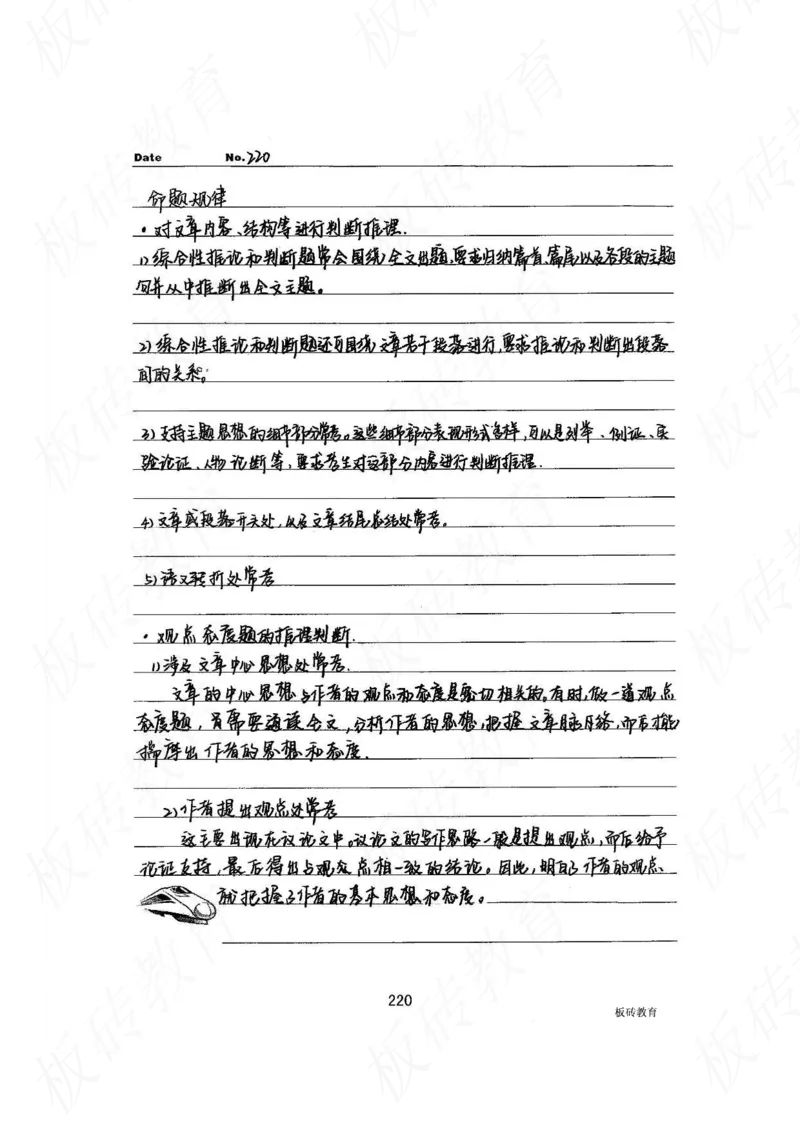 Date No.220
命题规律
·对文章内容、结构等进行判断推理.
1)综合性推论和判断题常会围绕全文出题,要求归纳篇首、篇尾以及各段的主题
句并从中推断出全文主题。
2)综合性推论和判断题还可围绕文章若干段落进行,要求推论和判断出段落
间的关系。
3)支持主题思想的细节部分常考。这些细节部分表现形式多样,可以是列举、例证、实
验论证、人物论断等,要求考生对该部分内容进行判断推理.
4)文章或段落开头处,以及文章结尾总结处常考。
5)语义转折处常考
·观点态度题的推理判断.
1)涉及文章中心思想处常考.
文章的中心思想与作者的观点和态度是密切相关的。有时,做一道观点
态度题,首需要通读全文,分析作者的思想,把握文章脉络,而后才能
揣摩出作者的思想和态度.
2)作者提出观点处常考
这主要出现在议论文中。议论文的写作思路一般是提出观点,而后给予
论证支持,最后得出与观众点相一致的结论。因此,明白了作者的观点、
就把握了作者的基本思想和态度。
220
板砖教育